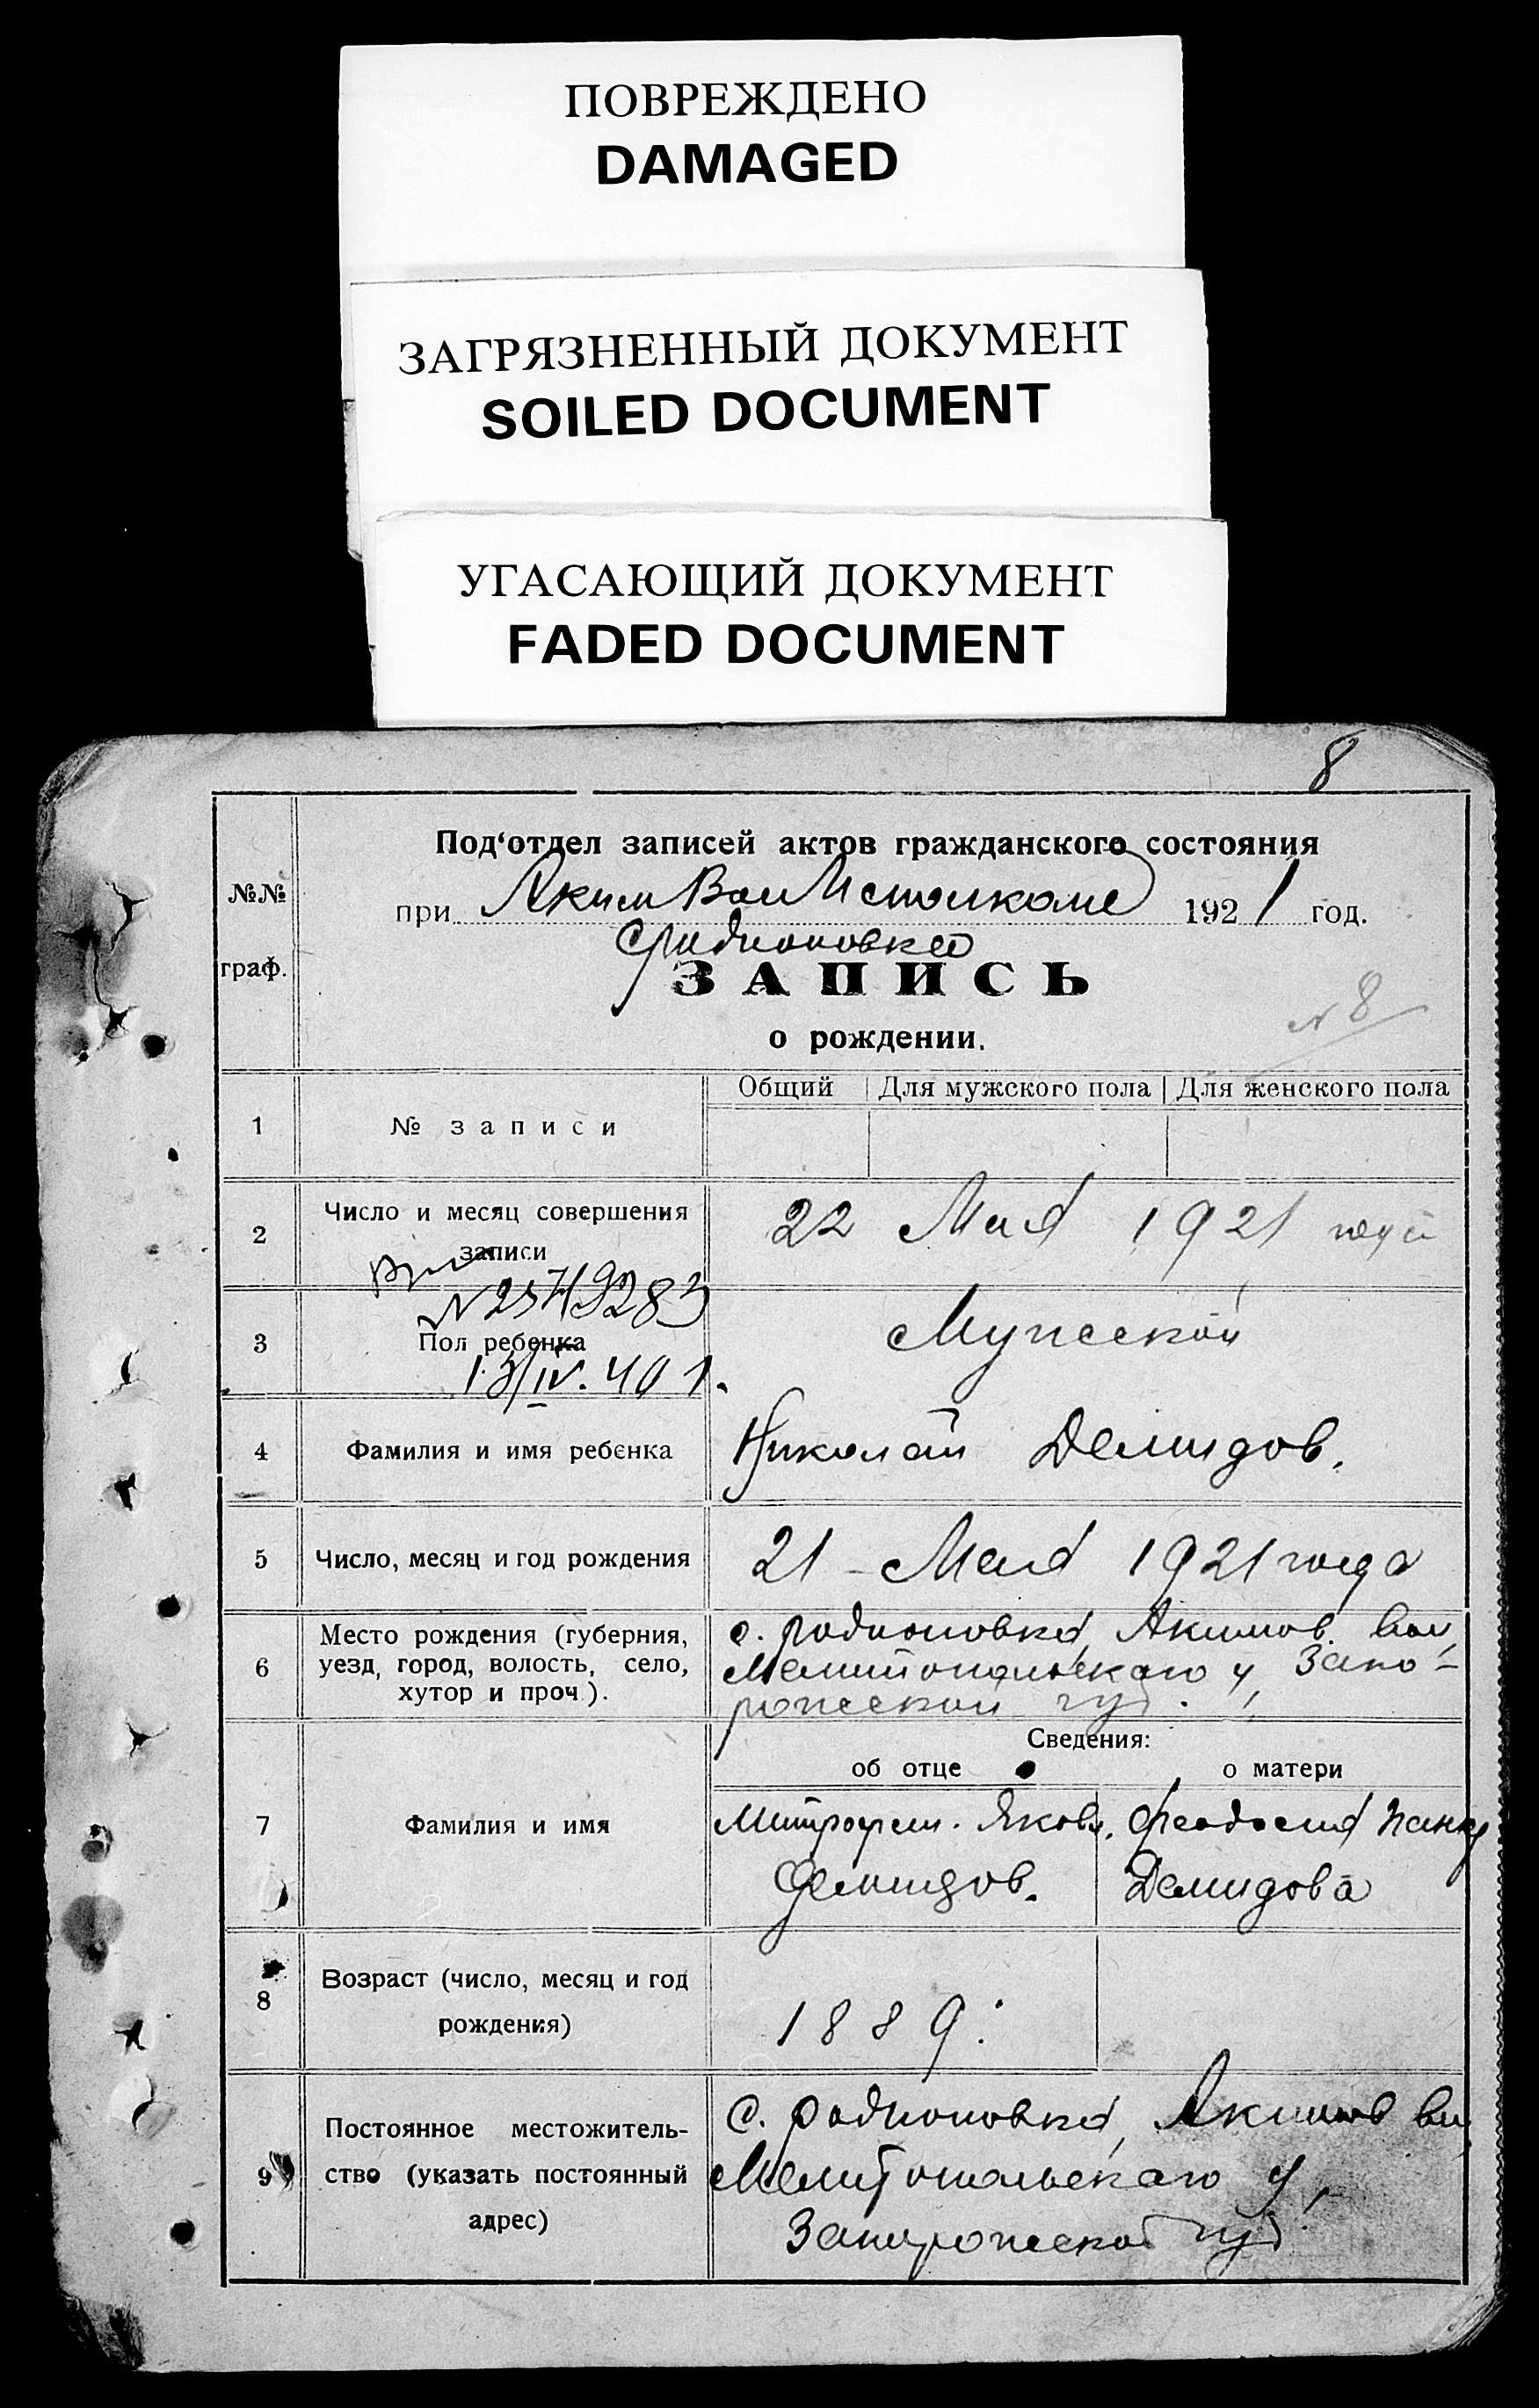 ПОВРЕЖДЕНО
DAMAGED
ЗАГРЯЗНЕННЫЙ ДОКУМЕНТ
SOILED DOCUMENT
УГАСАЮЩИЙ ДОКУМЕНТ
FADED DOCUMENT
8
№№ граф.
Под‘отдел записей актов гражданского состояния
при Аким Вол Исполкоме 1921 год.
с Родионовка
ЗАПИСЬ
о рождении.
№ 8
Общий Для мужского пола Для женского пола
1 № записи
2 Число и месяц совершения записи 22 Мая 1921 года
№ 257/9283
13/IV. 40 г.
3 Пол ребенка Мужской
4 Фамилия и имя ребенка Николай Демидов.
5 Число, месяц и год рождения 21 – Мая 1921 года
6 Место рождения (губерния, уезд, город, волость, село, хутор и проч.).
с. Родионовка, Акимов. вол,
Мелитопольскаго у, Запо-
рожской губ.
Сведения:
об отце о матери
7 Фамилия и имя
Митрофан. Яковл. Феодосия Панк
Демидов. Демидова
8 Возраст (число, месяц и год рождения) 1889.
9 Постоянное местожительство (указать постоянный адрес)
с. Родионовка, Акимов вол
Мелитопольскаго у,
Запорожской губ.